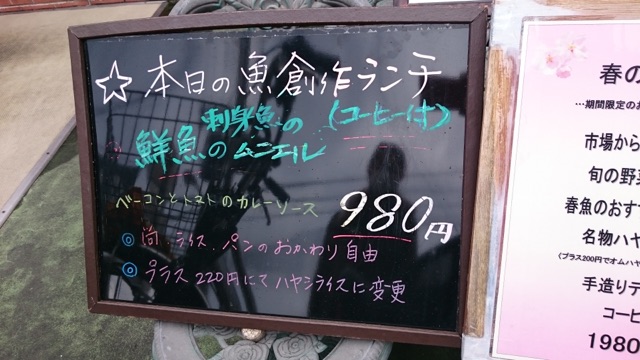 ☆本日の魚創作ランチ
刺身魚の (コーヒー付)
鮮魚のムニエル
ベーコンとトマトのカレーソース 980円
◎尚、ライス、パンのおかわり自由
◎プラス220円にてハヤシライスに変更
春の
…期間限定のお
市場から
旬の野菜
春魚のおす
名物ハヤ
(プラス200円でオムハヤ
手造りデ
コーヒ
1980